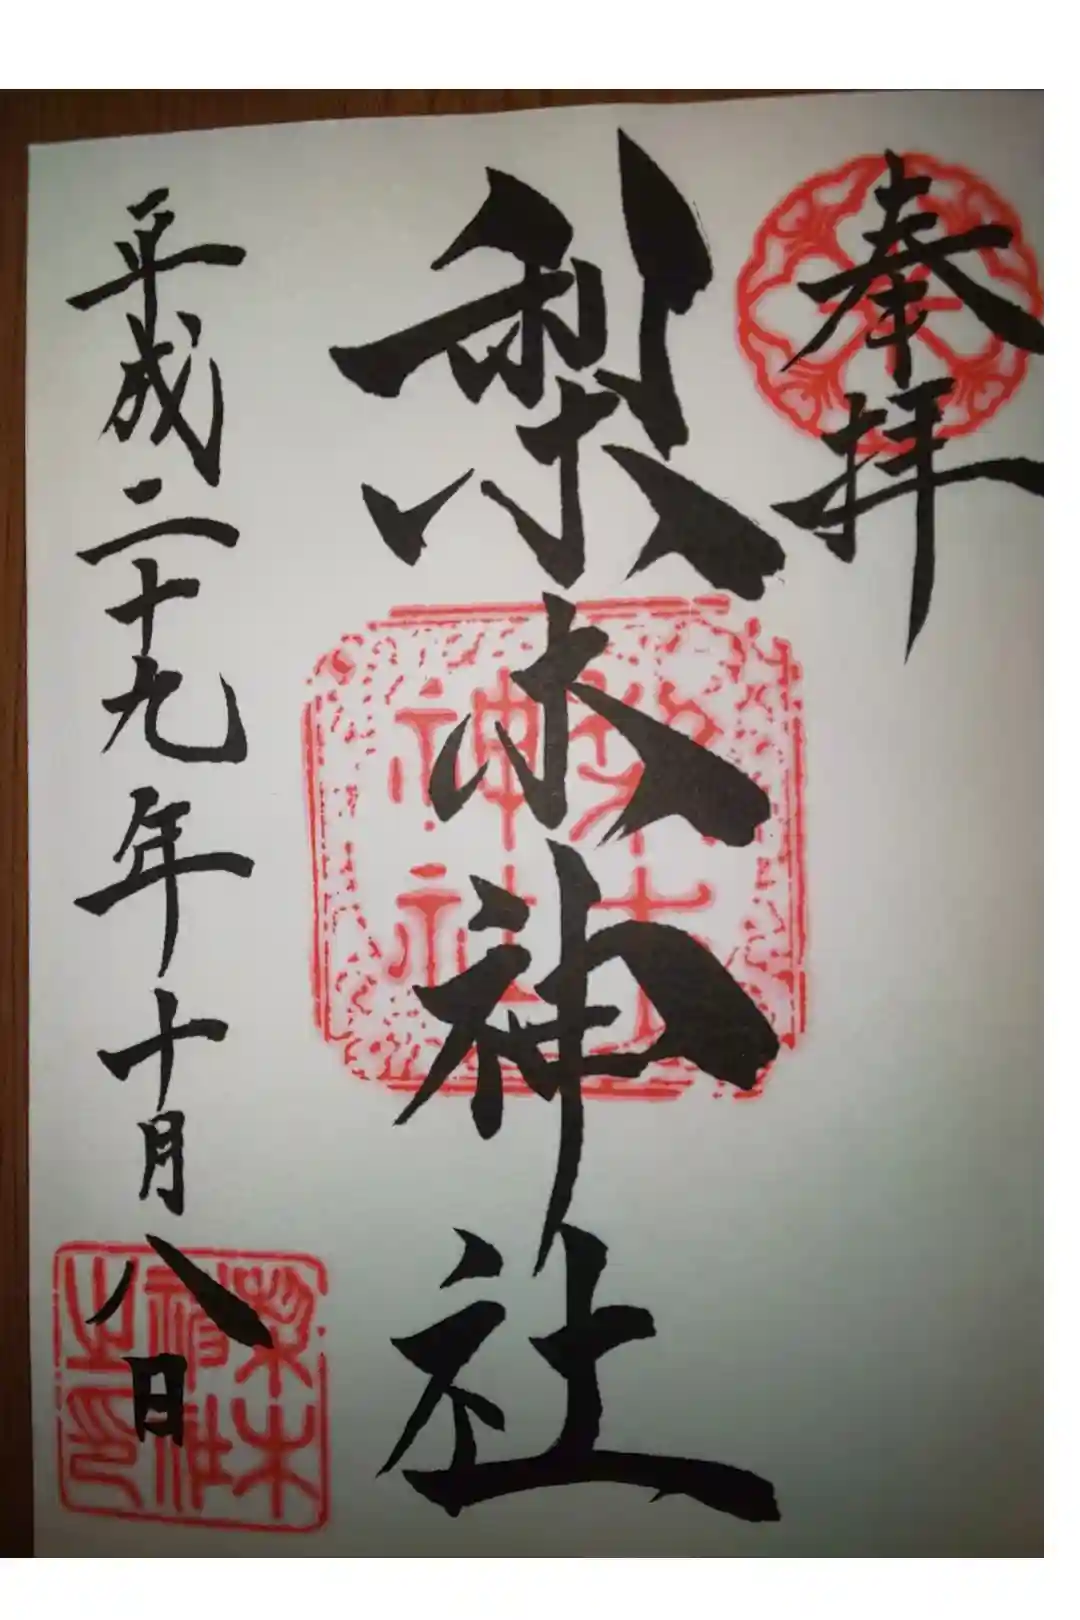 奉拝
梨木神社
平成二十九年十月八日
梨木
神社
梨木
神社
之印